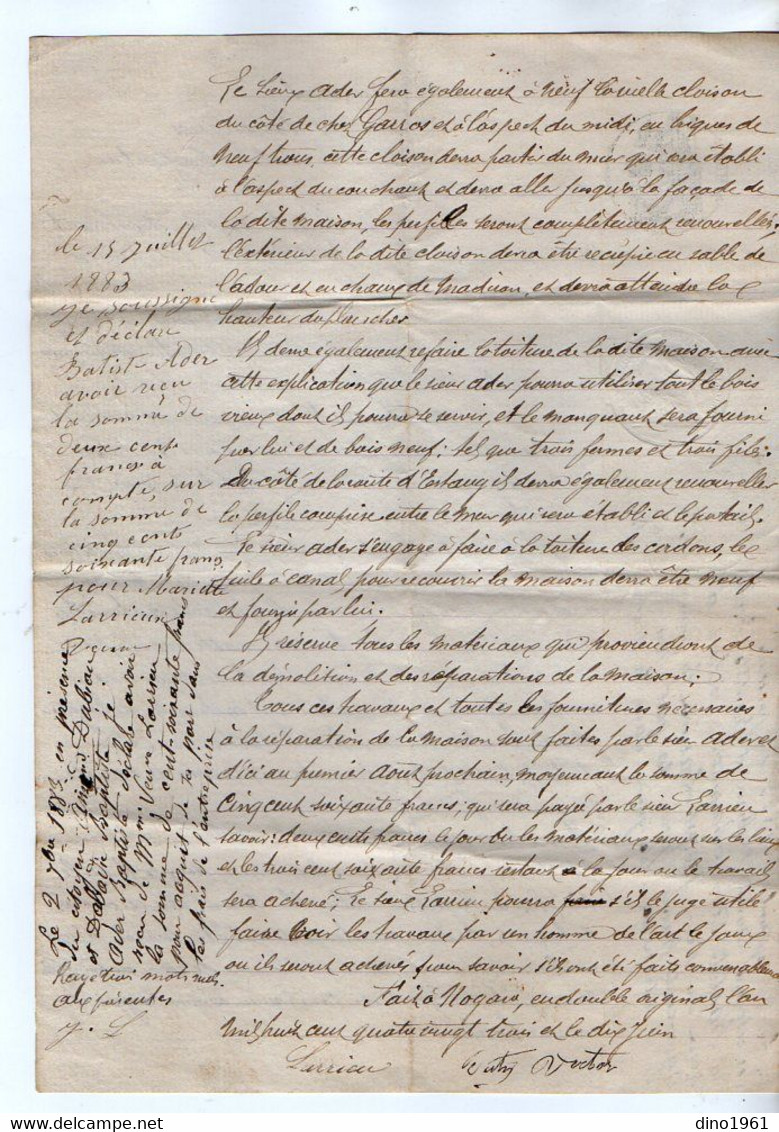 Le sieur ader fera également à neuf la vielle cloison
du côté de chez Garros et à l'aspect du midi, en briques de
neuf trous, cette cloison devra partir du mur qui sera établi
à l'aspect du couchant et devra aller jusqu'à la façade de
la dite maison, les perfiles seront complètement renouvellés,
l'extérieur de la dite cloison devra être recrépie en sable de
l'adour et en chaux de Madiran, et devra atteindre la
hauteur du plancher
Il devra également refaire la toiture de la dite maison avec
cette explication que le sieur ader pourra utiliser tout le bois
vieux dont il pourra se servir, et le manquant sera fourni
par lui et de bois neuf; tel que trois fermes et trois files.
Du côté de la route d'Estang il devra également renouveller
la perfile comprise entre le mur qui sera établi et le portail.
Le sieur ader s'engage à faire à la toiture des cordons, la
tuile à canal, pour recouvrir la maison devra être neuf
et fournie par lui.
Il réserve tous les matériaux qui proviendront de
la démolition et des réparations de la maison;
Tous ces travaux et toutes les fournitures nécessaires
à la réparation de la maison sont faites par le sieur ader et
d'ici au premier aout prochain, moyennant la somme de
Cinq cent soixante francs, qui sera payé par le sieur Larrieu
savoir: deux cents francs le jour ou les matériaux seront sur les lieux
et les trois cent soixante francs restant à la jour ou le travail
sera achevé; Le sieur Larrieu pourra s'il le juge utile
faire voir les travaux par un homme de l'art le jour
ou ils seront achevés pour savoir s'ils ont été faits convenablement
Fait à Nogaro, en double original, l'an
mil huit cent quatre vingt trois et le dix juin
Larrieu
Victor
le 15 juillet
1883
je soussigné
et déclare
Batiste Ader
avoir reçu
la somme de
deux cents
francs à
compte, sur
la somme de
cinq cents
soixante francs
pour Mariette
Larrieu
Le 2 7bre 1883 en présence
du citoyen Dabiau
et Baptiste je
Ader Baptiste déclare avoir
reçu de Mme Veuve Larrieu
la somme de cent-soixante francs
pour acquit je dis pour sans
les frais de l'entreprise
Rayé trois mots nuls
aux présentes
J. L
dino1961